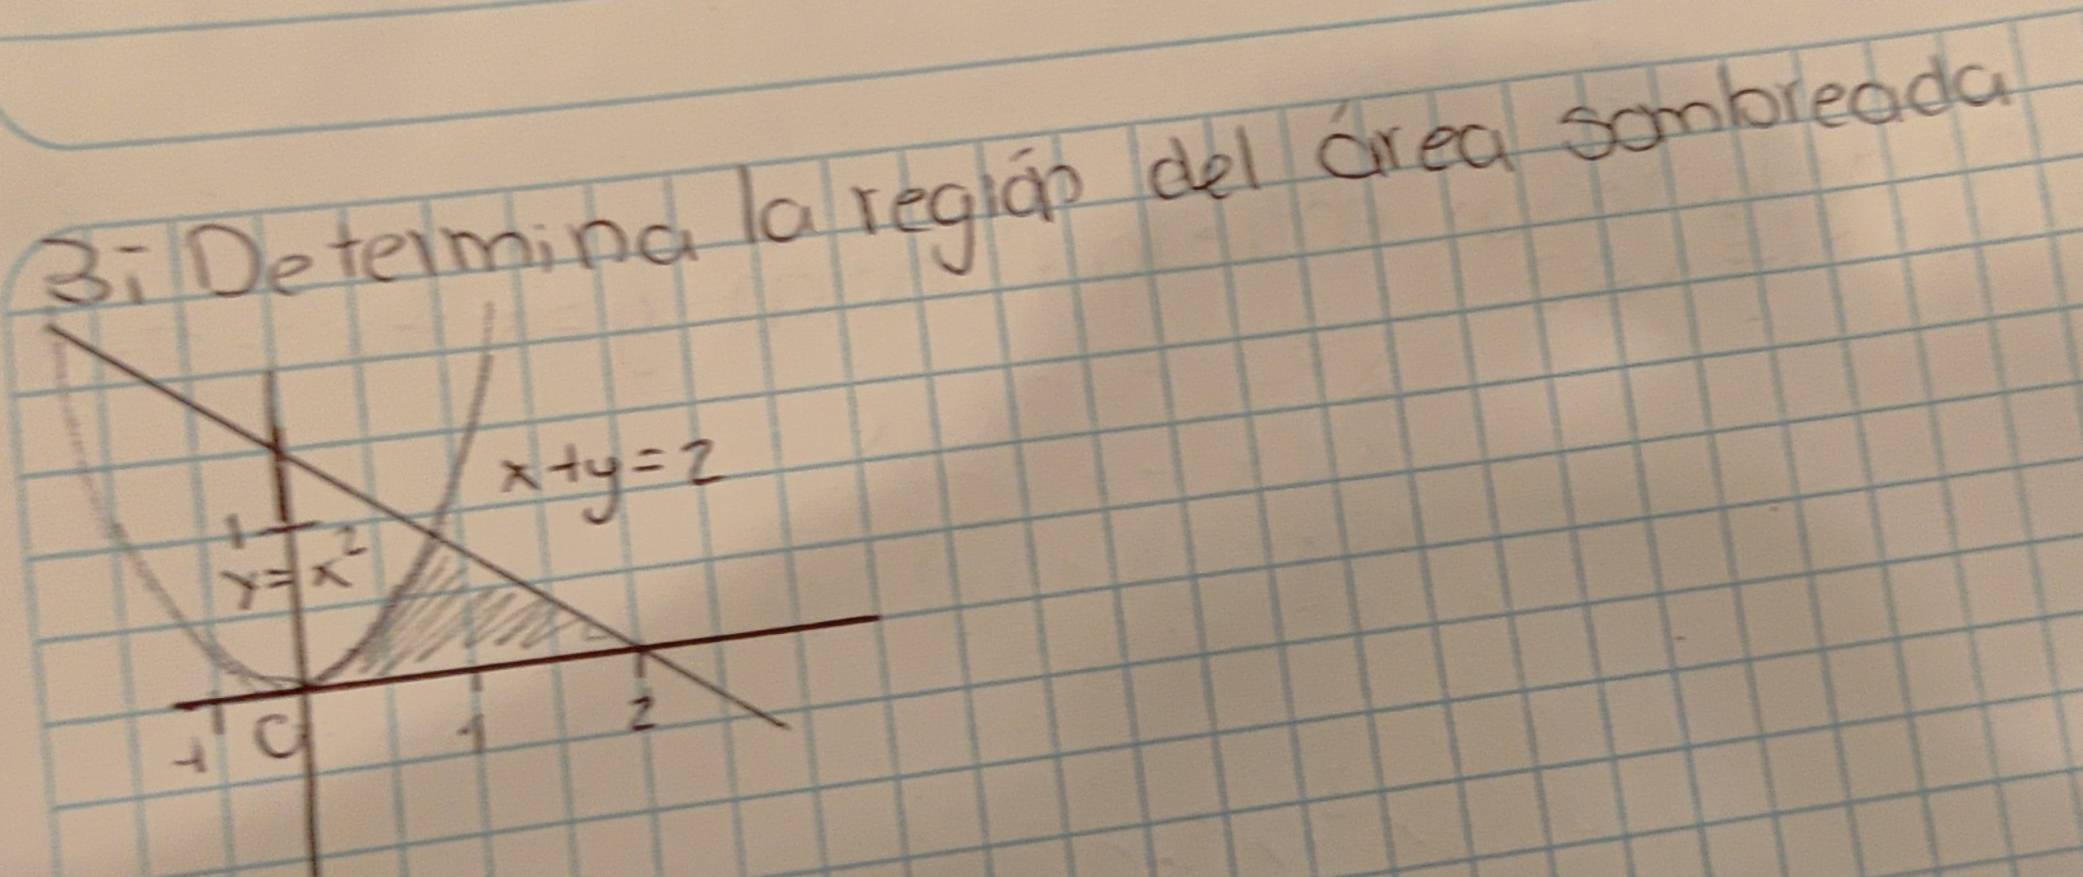 3: Determina la región del área sombreada
x+y=2
1
y=x²
-1 0 1 2